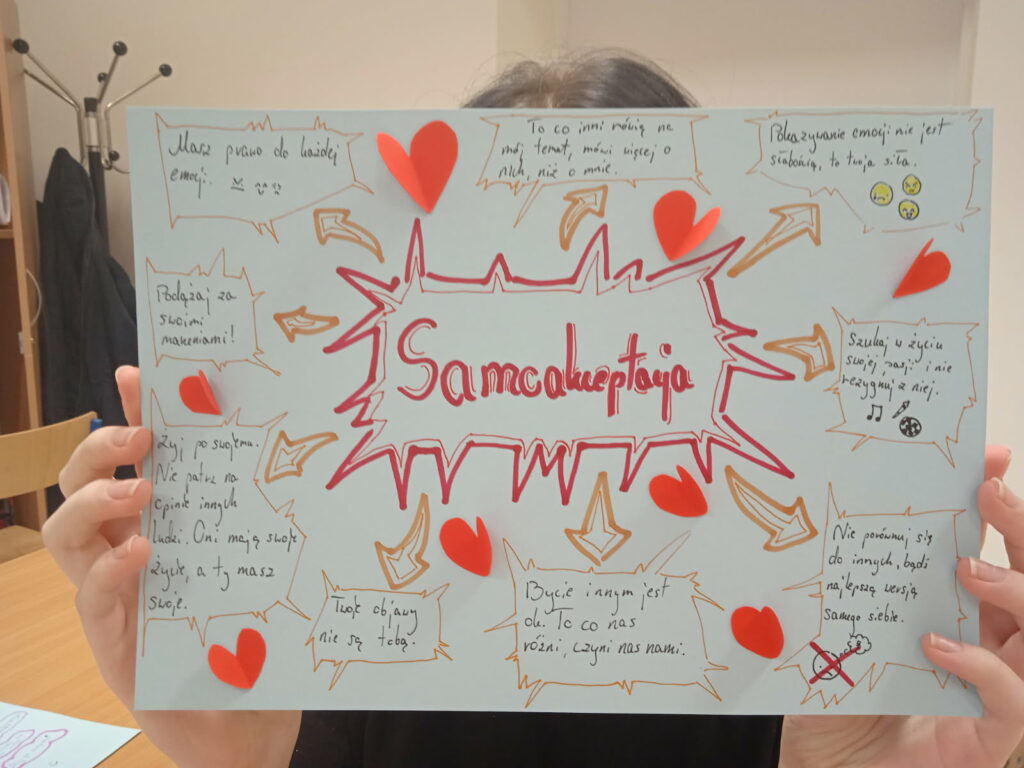 Masz prawo do każdej
emocji.
To co inni mówią na
mój temat, mówi więcej o
nich, niż o mnie.
Pokazywanie emocji nie jest
słabością, to twoja siła.
Podążaj za
swoimi
marzeniami!
Samoakceptacja
Szukaj w życiu
swojej pasji i nie
rezygnuj z niej.
Żyj po swojemu.
Nie patrz na
opinie innych
ludzi. Oni mają swoje
życie, a ty masz
swoje.
Twoje objawy
nie są tobą.
Bycie innym jest
ok. To co nas
różni, czyni nas nami.
Nie porównuj się
do innych, bądź
najlepszą wersją
samego siebie.